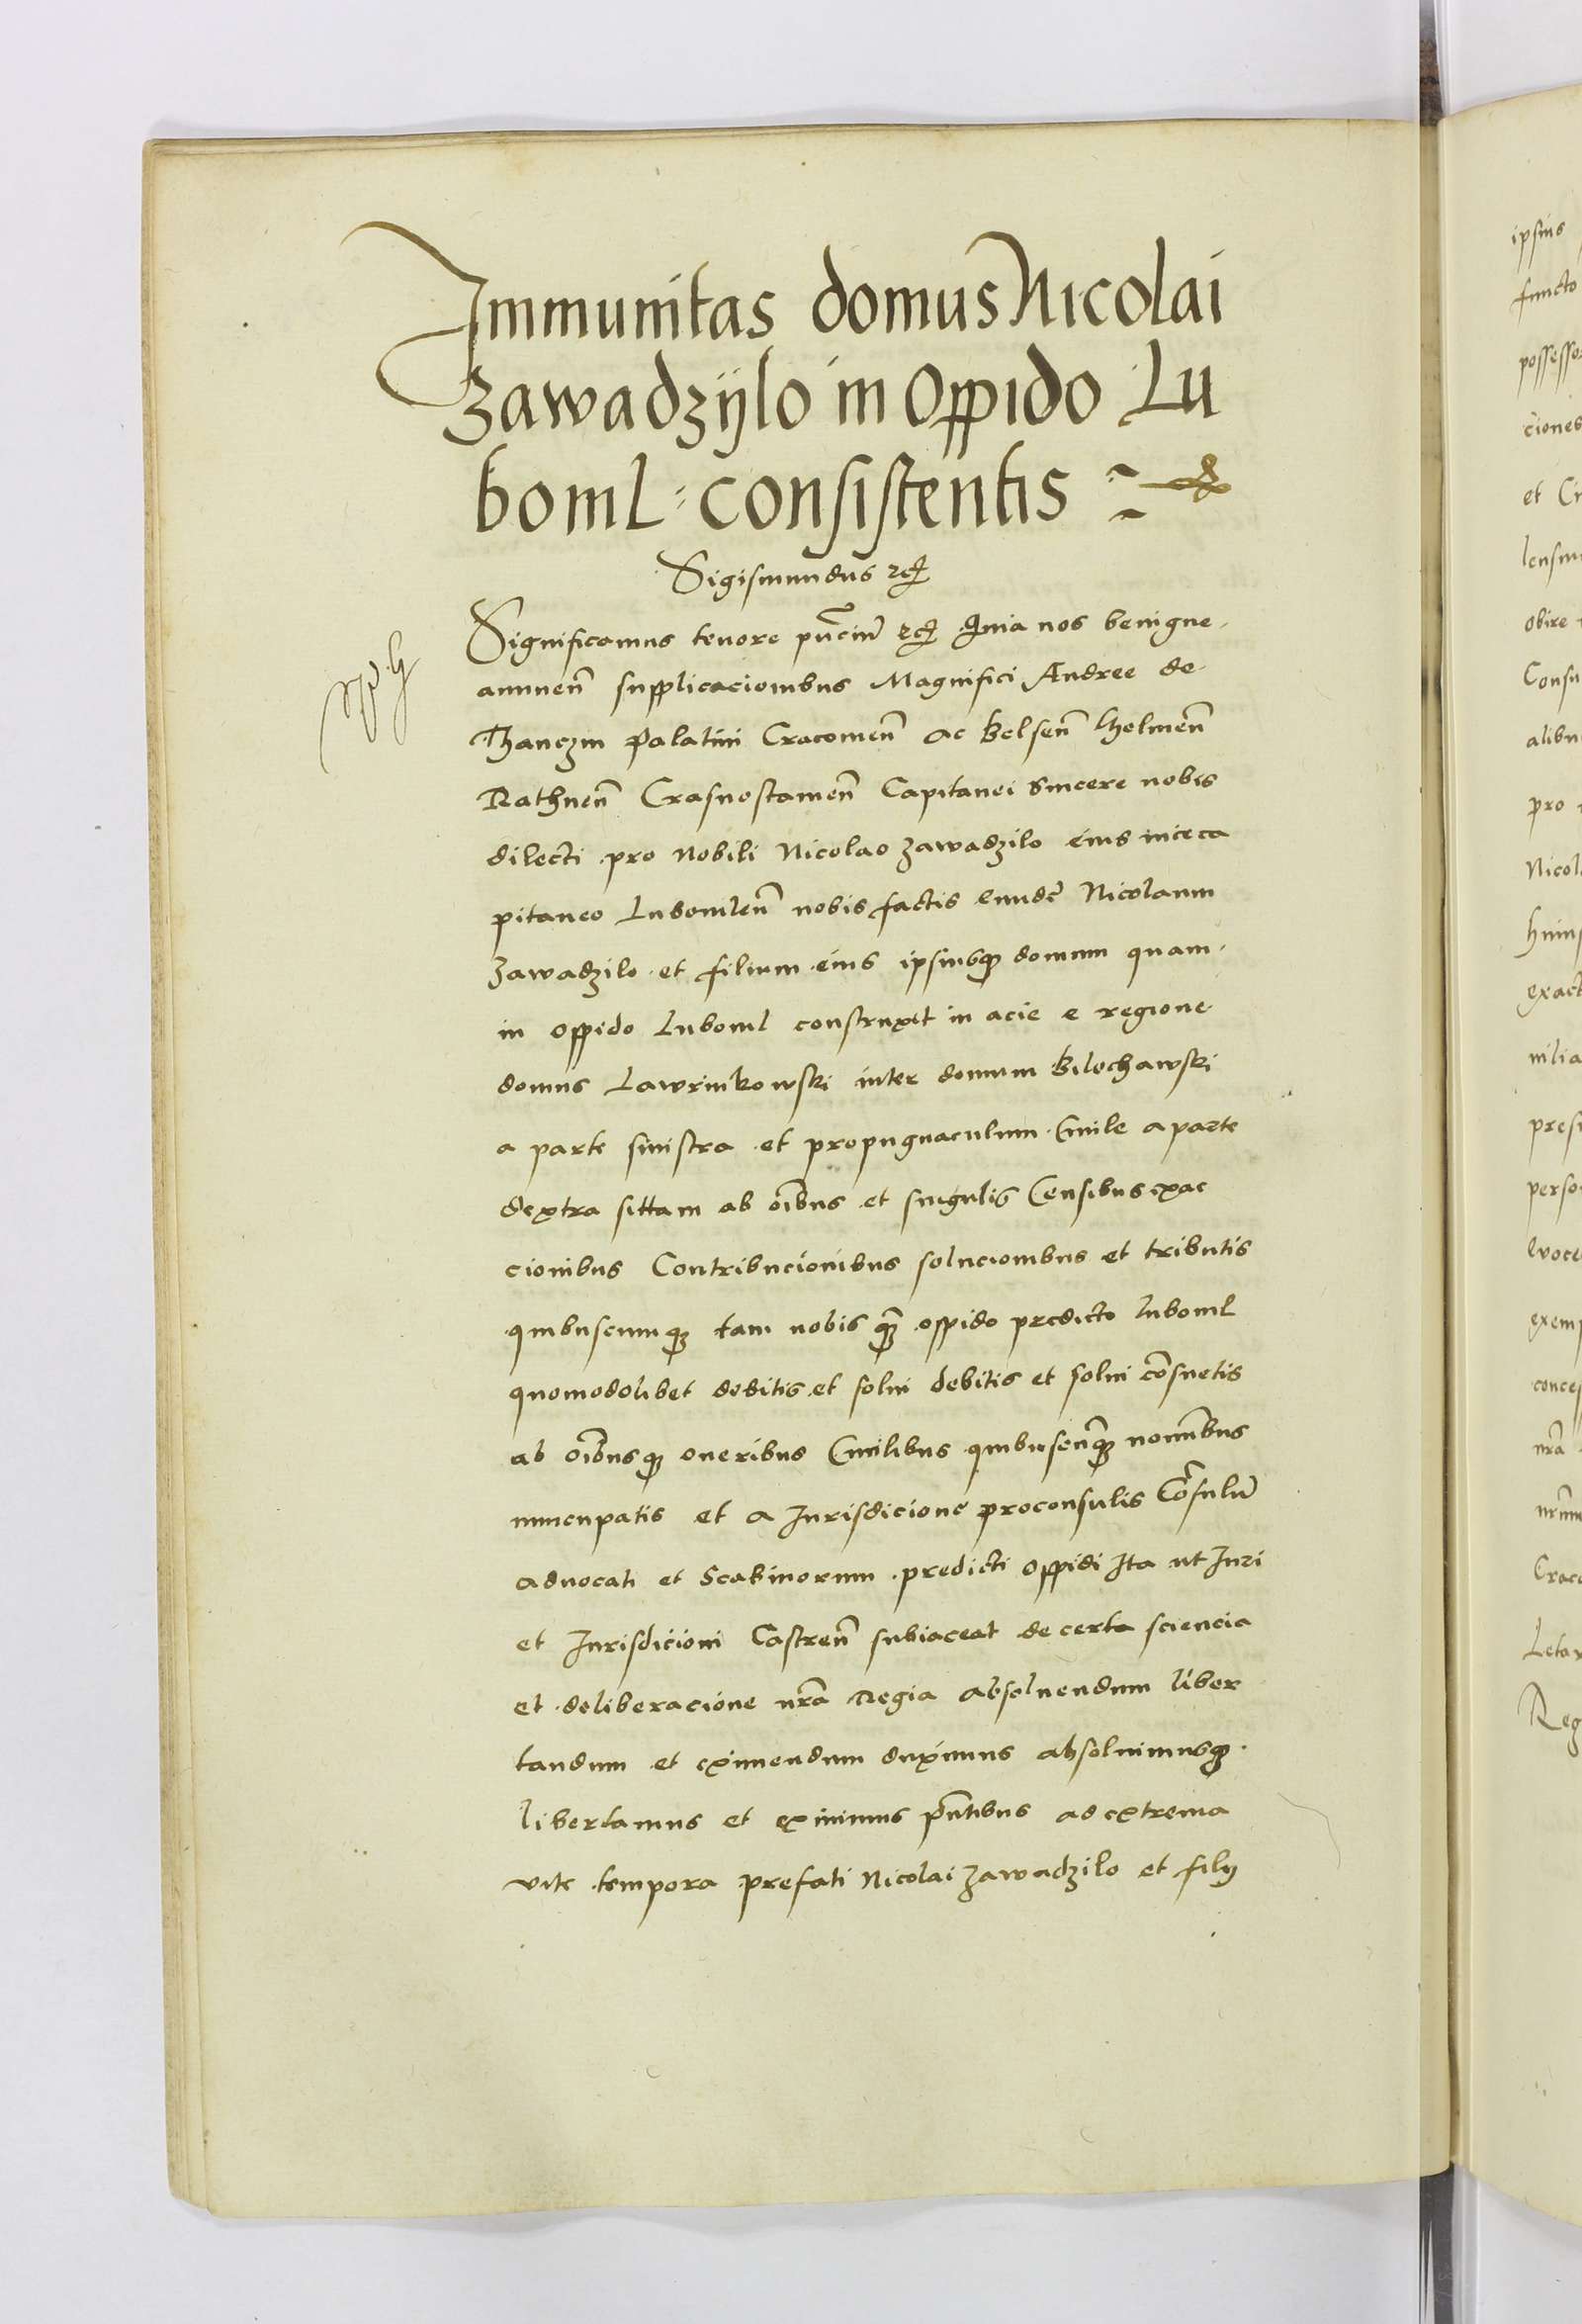 Immunitas domus Nicolai
Zawadzijlo in Oppido Lu
boml consistentis
Sigismundus
Significamus tenore Quia nos benigne
annuen̄ supplicacionibus Magnifici Andree de
Thanczin Palatini Cracouien̄ ac Belsen̄ Chelmen̄
Rathnen̄ Crasnostauien̄ Capitanei Sincere nobis
dilecti pro Nobili Nicolao Zawadzilo eius viceca
pitaneo Lubomlen̄ nobis factis eundē Nicolaum
Zawadzilo et filium eius ipsiusq₃ domum quam
in oppido Luboml construxit in acie e regione
domus Lawrinkowski inter domum Bilochawski
a parte sinistra et propugnaculum Ciuile a parte
dextra sittam ab oībus et singulis Censibus exac
cionibus Contribucionibus solucionibus et tributis
quibuscumq₃ tam nobis q̄₃ oppido predicto Luboml
quomodolibet debitis et solui debitis et solui cōsuetis
ab oībusq₃ oneribus Ciuilibus quibuscūq₃ nominibus
nuncupatis et a Jurisdicione proconsulis Cōsulū
aduocati et Scabinorum predicti oppidi Ita ut Juri
et Jurisdicioni Castren̄ subiaceat de certa sciencia
et deliberacione nr̄a Regia absoluendum liber
tandum et eximendum duximus absoluimusq₃
libertamus et eximimus pn̄tibus ad extrema
vite tempora prefati Nicolai Zawadzilo et filij
ipsius
functo
possesso
ciones
et Cr
obire
Consu
alibu
pro
Nicol
huius
exact
perso
exemp
conces
nr̄a
Craco
Reg